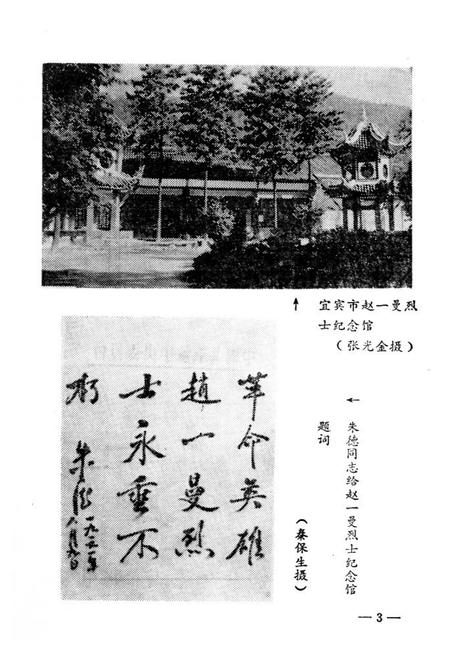 宜宾市赵一曼烈
士纪念馆
(张光金摄)
革命英雄
趙一曼烈
士永垂不
朽
朱德
八月九日
朱德同志给赵一曼烈士纪念馆
题词
(秦保生摄)
—3—